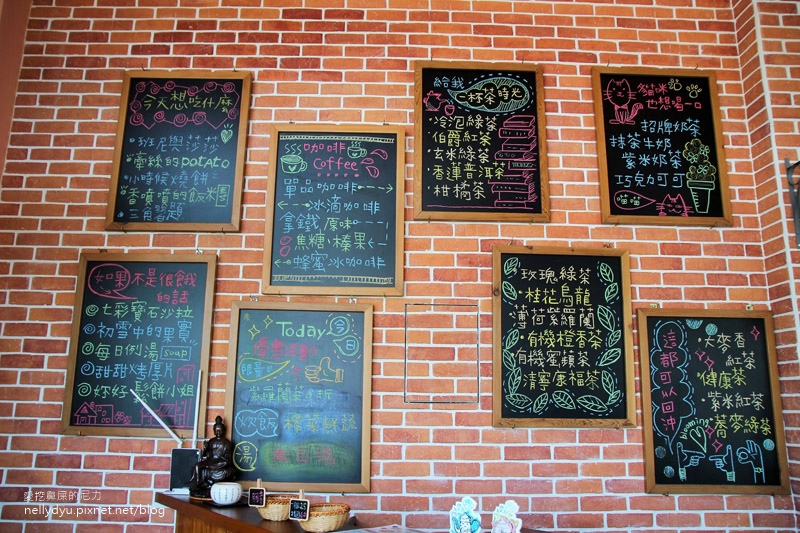 今天想吃什麼
班尼與莎莎
薯絲的potato
小時候燒餅
香噴噴的飯米團
三角習題
咖啡
Coffee
單品咖啡
冰滴咖啡
拿鐵 原味
焦糖、榛果
蜂蜜冰咖啡
給我
一杯茶時光
冷泡綠茶
伯爵紅茶
玄米綠茶
香蓮普洱茶
柑橘茶
貓咪
也想喝一口
招牌奶茶
抹茶牛奶
紫米奶茶
巧克力可可
喵~喵
如果不是很餓
的話
七彩寶石沙拉
初雪中的果實
每日例湯 soup
甜甜烤厚片
妳好 鬆餅小姐
Today 今日
炊飯
湯
玫瑰綠茶
桂花烏龍
薄荷紫羅蘭
有機橙香茶
有機蜜蘋茶
清寧康福茶
這都可以回沖
大麥香
紅茶
健康茶
紫米紅茶
蕎麥綠茶
blooming
愛挖鼻屎的尼力
nellydyu.pixnet.net/blog